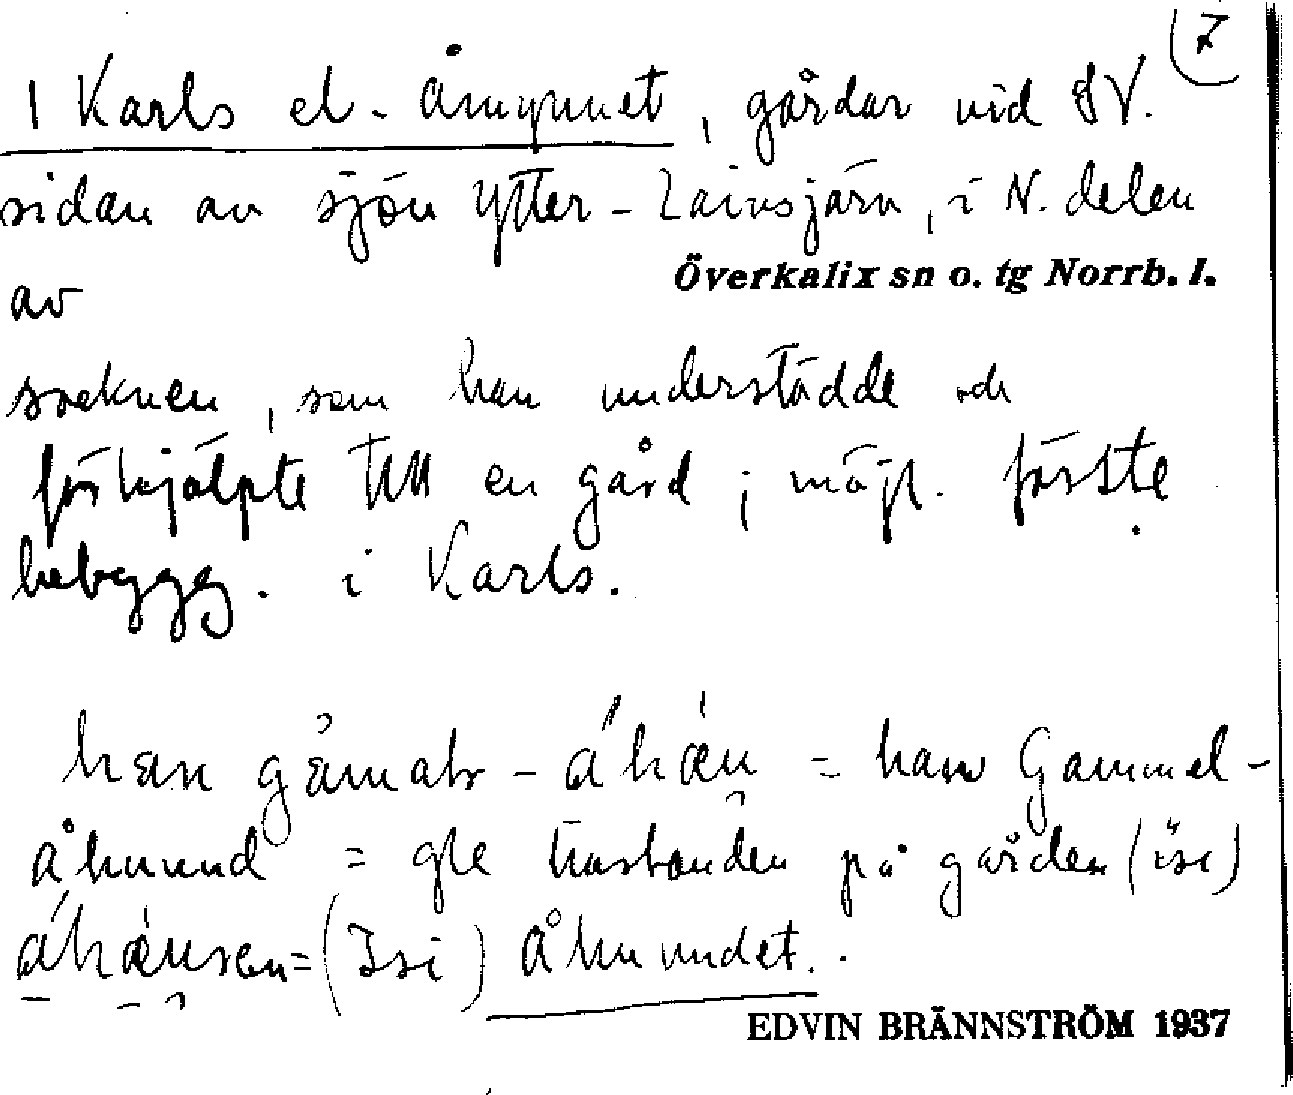 7
I Karls el. Åmynnet, gårdar vid SV.
sidan av sjön Ytter-Lainsjärv, i N. delen
Överkalix sn o. tg Norrb. l.
av
socknen, som han understödde och
förhjälpte till en gård; möjl. förste
bebygg. i Karls.
han gåmalr - = han Gammel-
Åhmund = gle husbonden på gården (isi)
= (Isi) Åhmundet.
EDVIN BRÄNNSTRÖM 1937